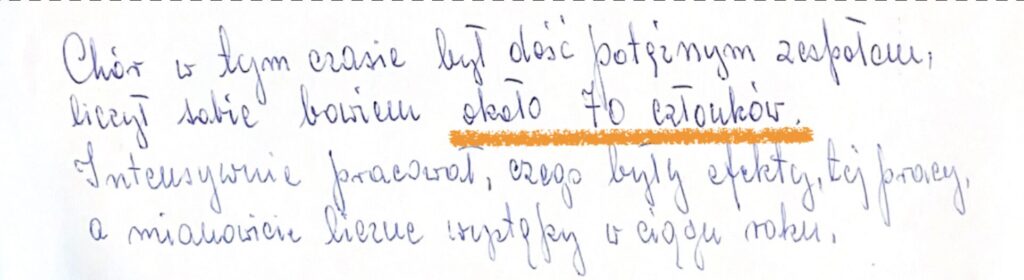 Chór w tym czasie był dość potężnym zespołem,
liczył sobie bowiem około 70 członków.
Intensywnie pracował, czego były efekty, tej pracy,
a mianowicie liczne występy w ciągu roku.